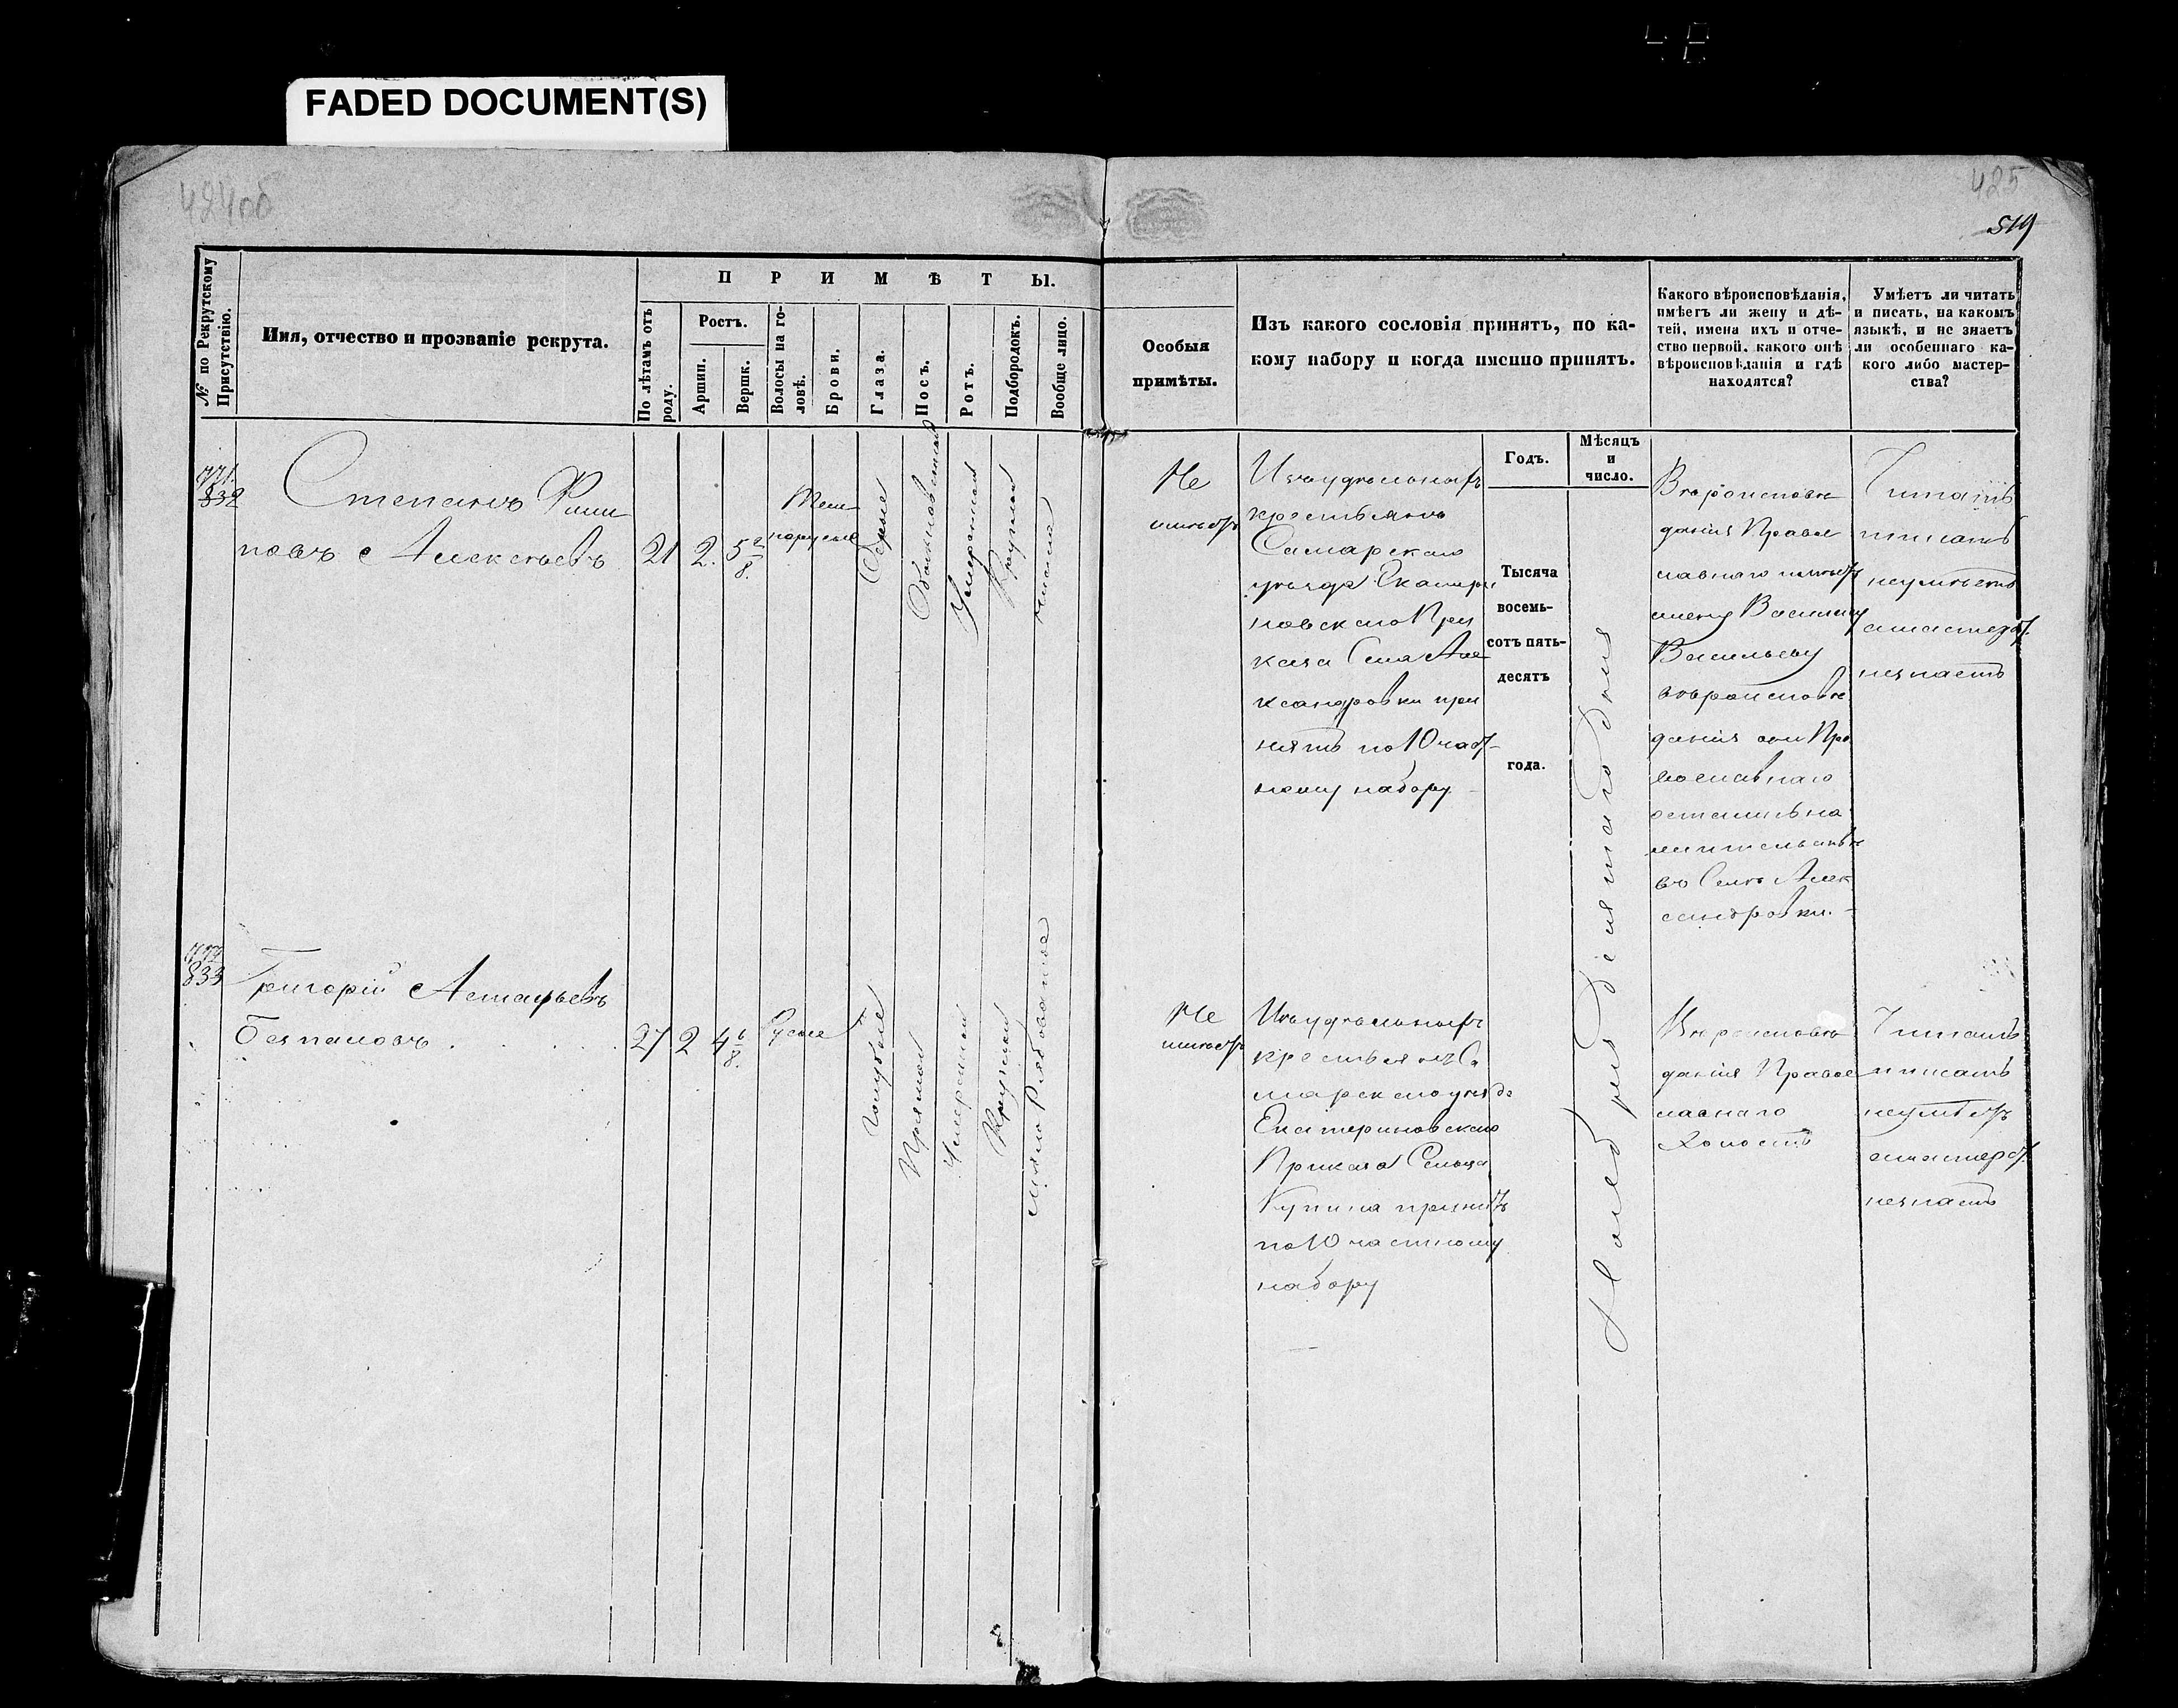 FADED DOCUMENT(S)
424об
425
519
№ по Рекрутскому Присутствію.
Имя, отчество и прозваніе рекрута.
ПРИМѢТЫ.
По лѣтамъ отъ роду.
Ростъ.
Аршин.
Вершк.
Волосы на головѣ.
Брови.
Глаза.
Носъ.
Ротъ.
Подбородокъ.
Вообще лицо.
Особыя
примѣты.
Изъ какого сословія принятъ, по ка-
кому набору и когда именно принятъ.
Какого вѣроисповѣданія,
имѣетъ ли жену и дѣ-
тей, имена ихъ и отче-
ство первой, какого онѣ
вѣроисповѣданія и гдѣ
находятся?
Умѣетъ ли читать
и писать, на какомъ
языкѣ, и не знаетъ
ли особеннаго ка-
кого либо мастер-
ства?
Годъ.
Мѣсяцъ
и
число.
Тысяча
восемь-
сотъ пять-
десятъ
года.
771.
832
Степанъ Фили
повъ Алексѣевъ
21
2.
5 2/8.
Тем-
норусые
Сѣрые
Обыкновенной
Умеренной
Круглой
чистое
Не
имѣетъ
Изъ удѣльныхъ
крестьянъ
Самарскаго
уѣзда Екатери
новскаго При
каза Села Але
ксандровки при
нятъ по 10 част-
ному набору.
Ноября девятаго дня
Вѣроисповѣ
данія Правос
лавнаго имѣетъ
жену Василису
Васильеву
вѣроисповѣ
данія они Пра
вославнаго
остались на
жительствѣ
въ Селѣ Алек
сандровки.
Читать
писать
неумѣетъ
мастерст.
незнаетъ
772
833
Григорій Астафьевъ
Безпаловъ
27
2
4 6/8.
Русые
Голубые
Прямой
Умеренной
Круглой
мало Рябоватое
Не
имѣетъ
Изъ удѣльныхъ
крестьянъ Са
марскаго уѣзда
Екатериновскаго
Приказа Сельца
Купина принятъ
по 10 частному
набору
Вѣроисповѣ
данія Правос
лавнаго
Холостъ
Читать
писать
неумѣетъ
мастерст.
незнаетъ